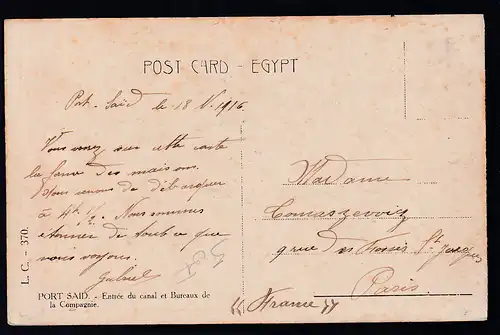 POST CARD - EGYPT
Port-Saïd le 18 V. 1916
Vous verrez sur cette carte
la forme des maisons.
Nous venons de débarquer
à 4h 1/2. Nous sommes
étonner de tout ce que
nous voyons.
Gabriel
L. C. - 370.
PORT SAID. - Entrée du canal et Bureaux de
la Compagnie.
Madame
Tomaszewiz
rue des Fossés St Jacques
Paris.
France